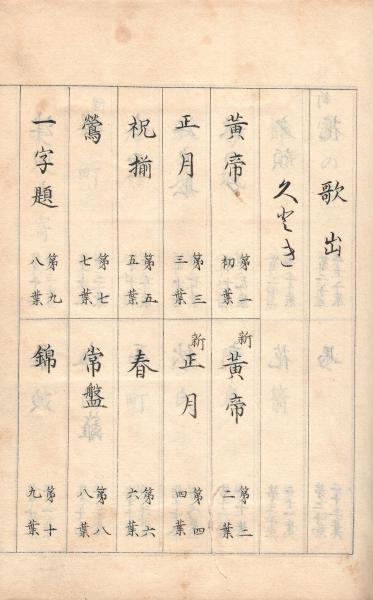 歌出
久堅き
黄帝 第一 初葉
新黄帝 第二 二葉
正月 第三 三葉
新正月 第四 四葉
祝揃 第五 五葉
春 第六 六葉
鶯 第七 七葉
常盤 第八 八葉
一字題 第九 八葉
錦 第十 九葉